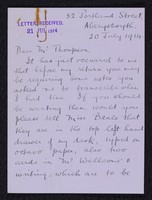 LETTER RECEIVED
21 JUL 1914
52 Portland Street,
Aberystwyth.
20 July 1914
Dear Mr Thompson,
It has just occurred to me
that before my return you may
be requiring some notes you
asked me to transcribe when
I had time. If you should
be wanting them would you
please tell Miss Beale that
they are in the top left hand
drawer of my desk, typed on
octavo paper, also two
cards in Mr Wellcome's
writing, which are to be